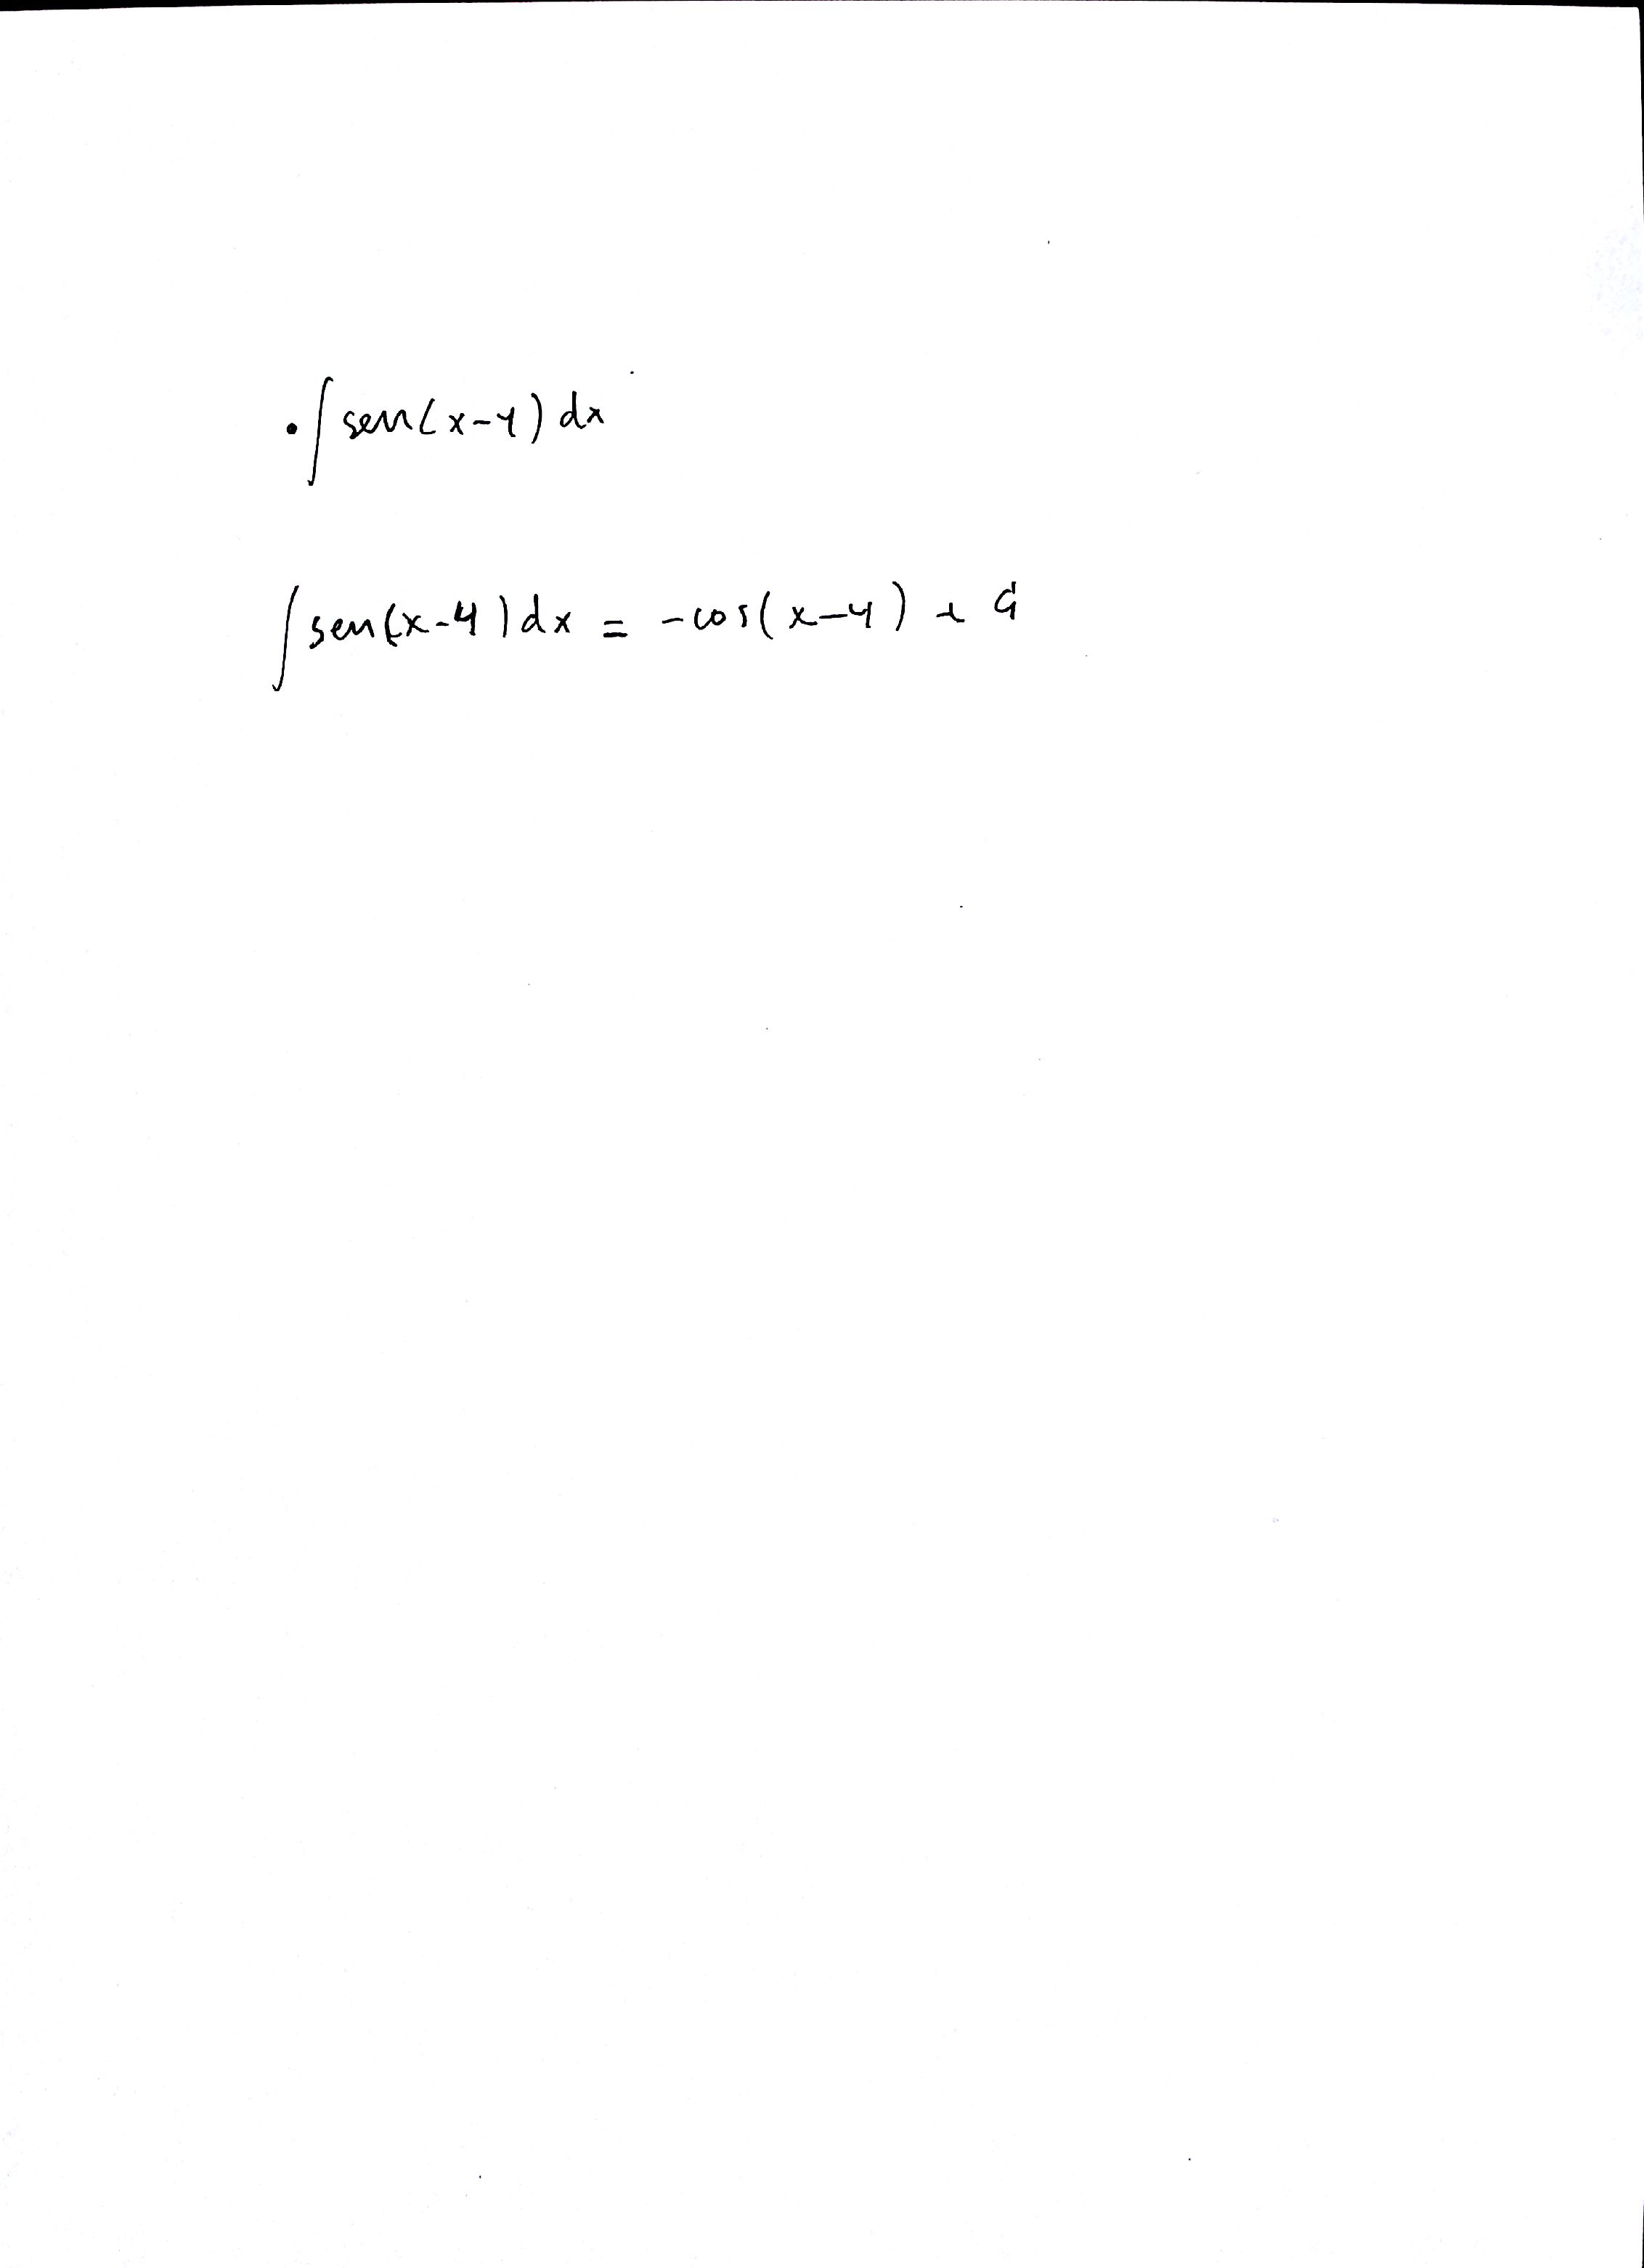 • ∫ sen(x-4) dx
∫ sen(x-4) dx = -cos(x-4) + C